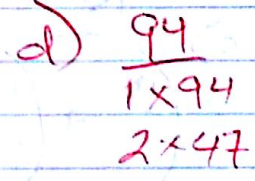 d) 94
1×94
2×47